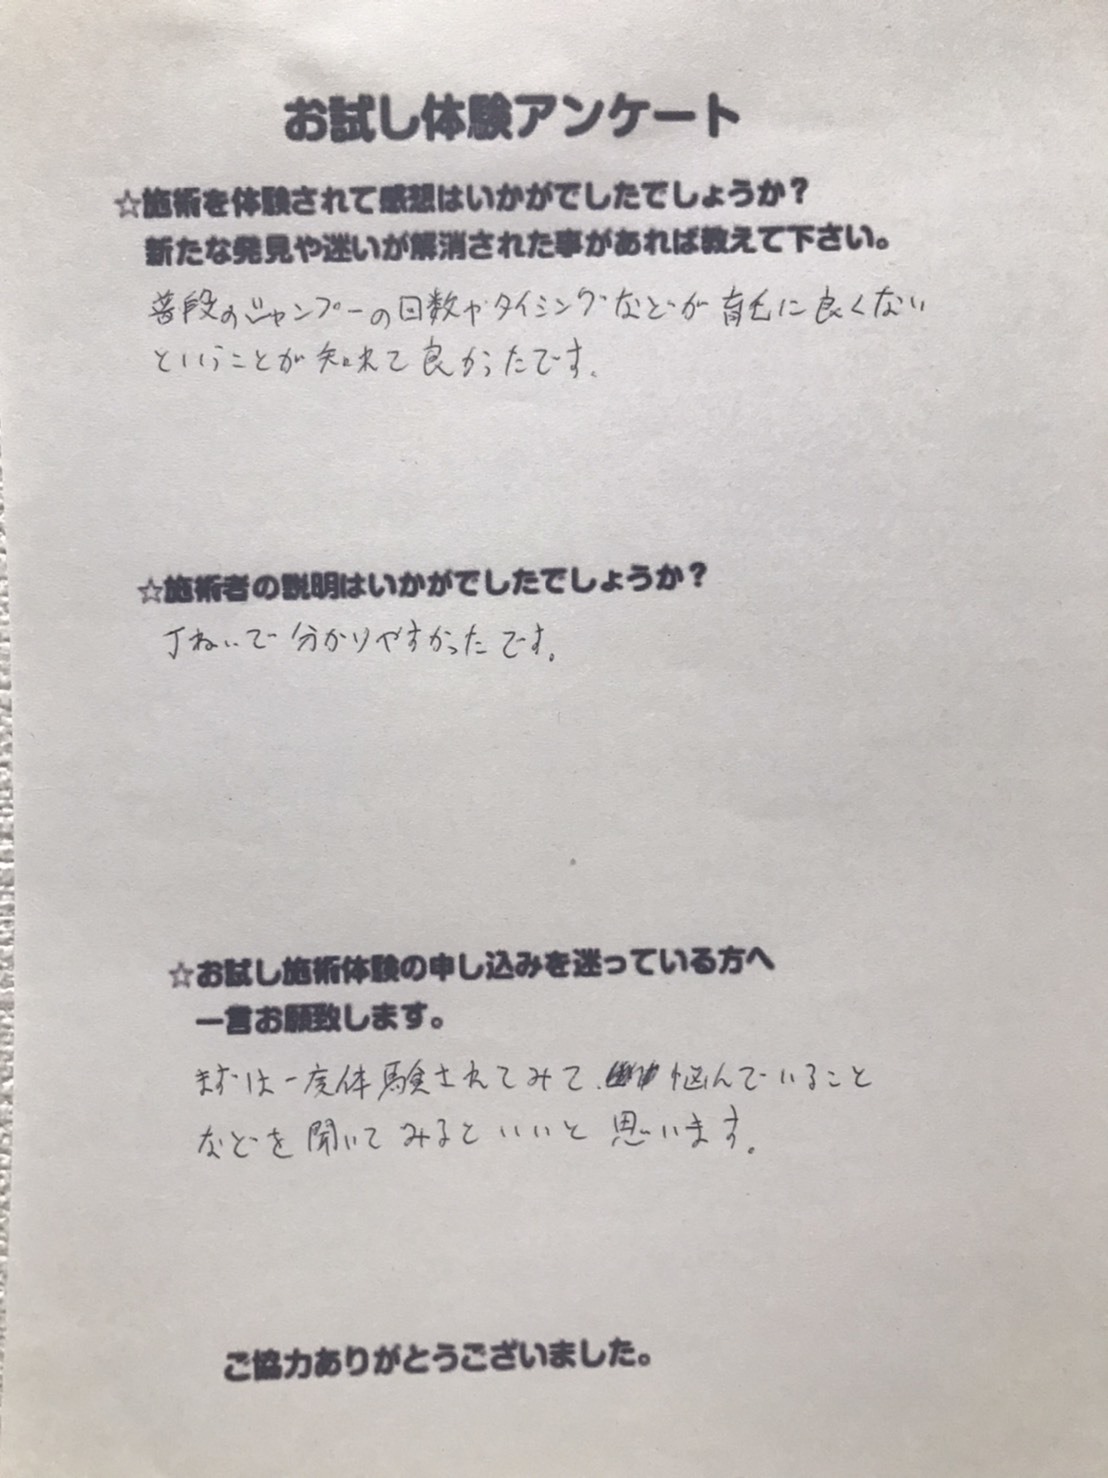 お試し体験アンケート
☆施術を体験されて感想はいかがでしたでしょうか？
新たな発見や迷いが解消された事があれば教えて下さい。
普段のシャンプーの回数やタイミングなどが育毛に良くない
ということが知れて良かったです。
☆施術者の説明はいかがでしたでしょうか？
丁ねいで分かりやすかったです。
☆お試し施術体験の申し込みを迷っている方へ
一言お願致します。
まずは一度体験されてみて、悩んでいること
などを聞いてみるといいと思います。
ご協力ありがとうございました。